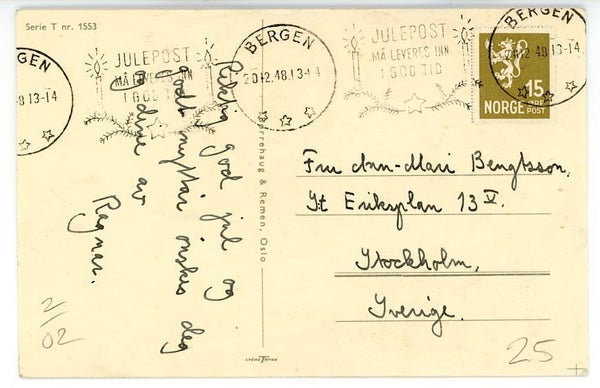 Serie T nr. 1553
BERGEN
8 13-14
JULEPOST
MÅ LEVERES INN
I GOD TID
BERGEN
20.12.48.13-14
JULEPOST
MÅ LEVERES INN
I GOD TID
BERGEN
20.12.48.13-14
15
ØRE
NORGE POST
Riktig god jul og
godt nyttår ønskes deg
og dine av
Ragnar.
Børrehaug & Remen, Oslo
Fru Ann-Mari Bengtsson,
St Eriksplan 13 V.
Stockholm,
Sverige.
2/02
25